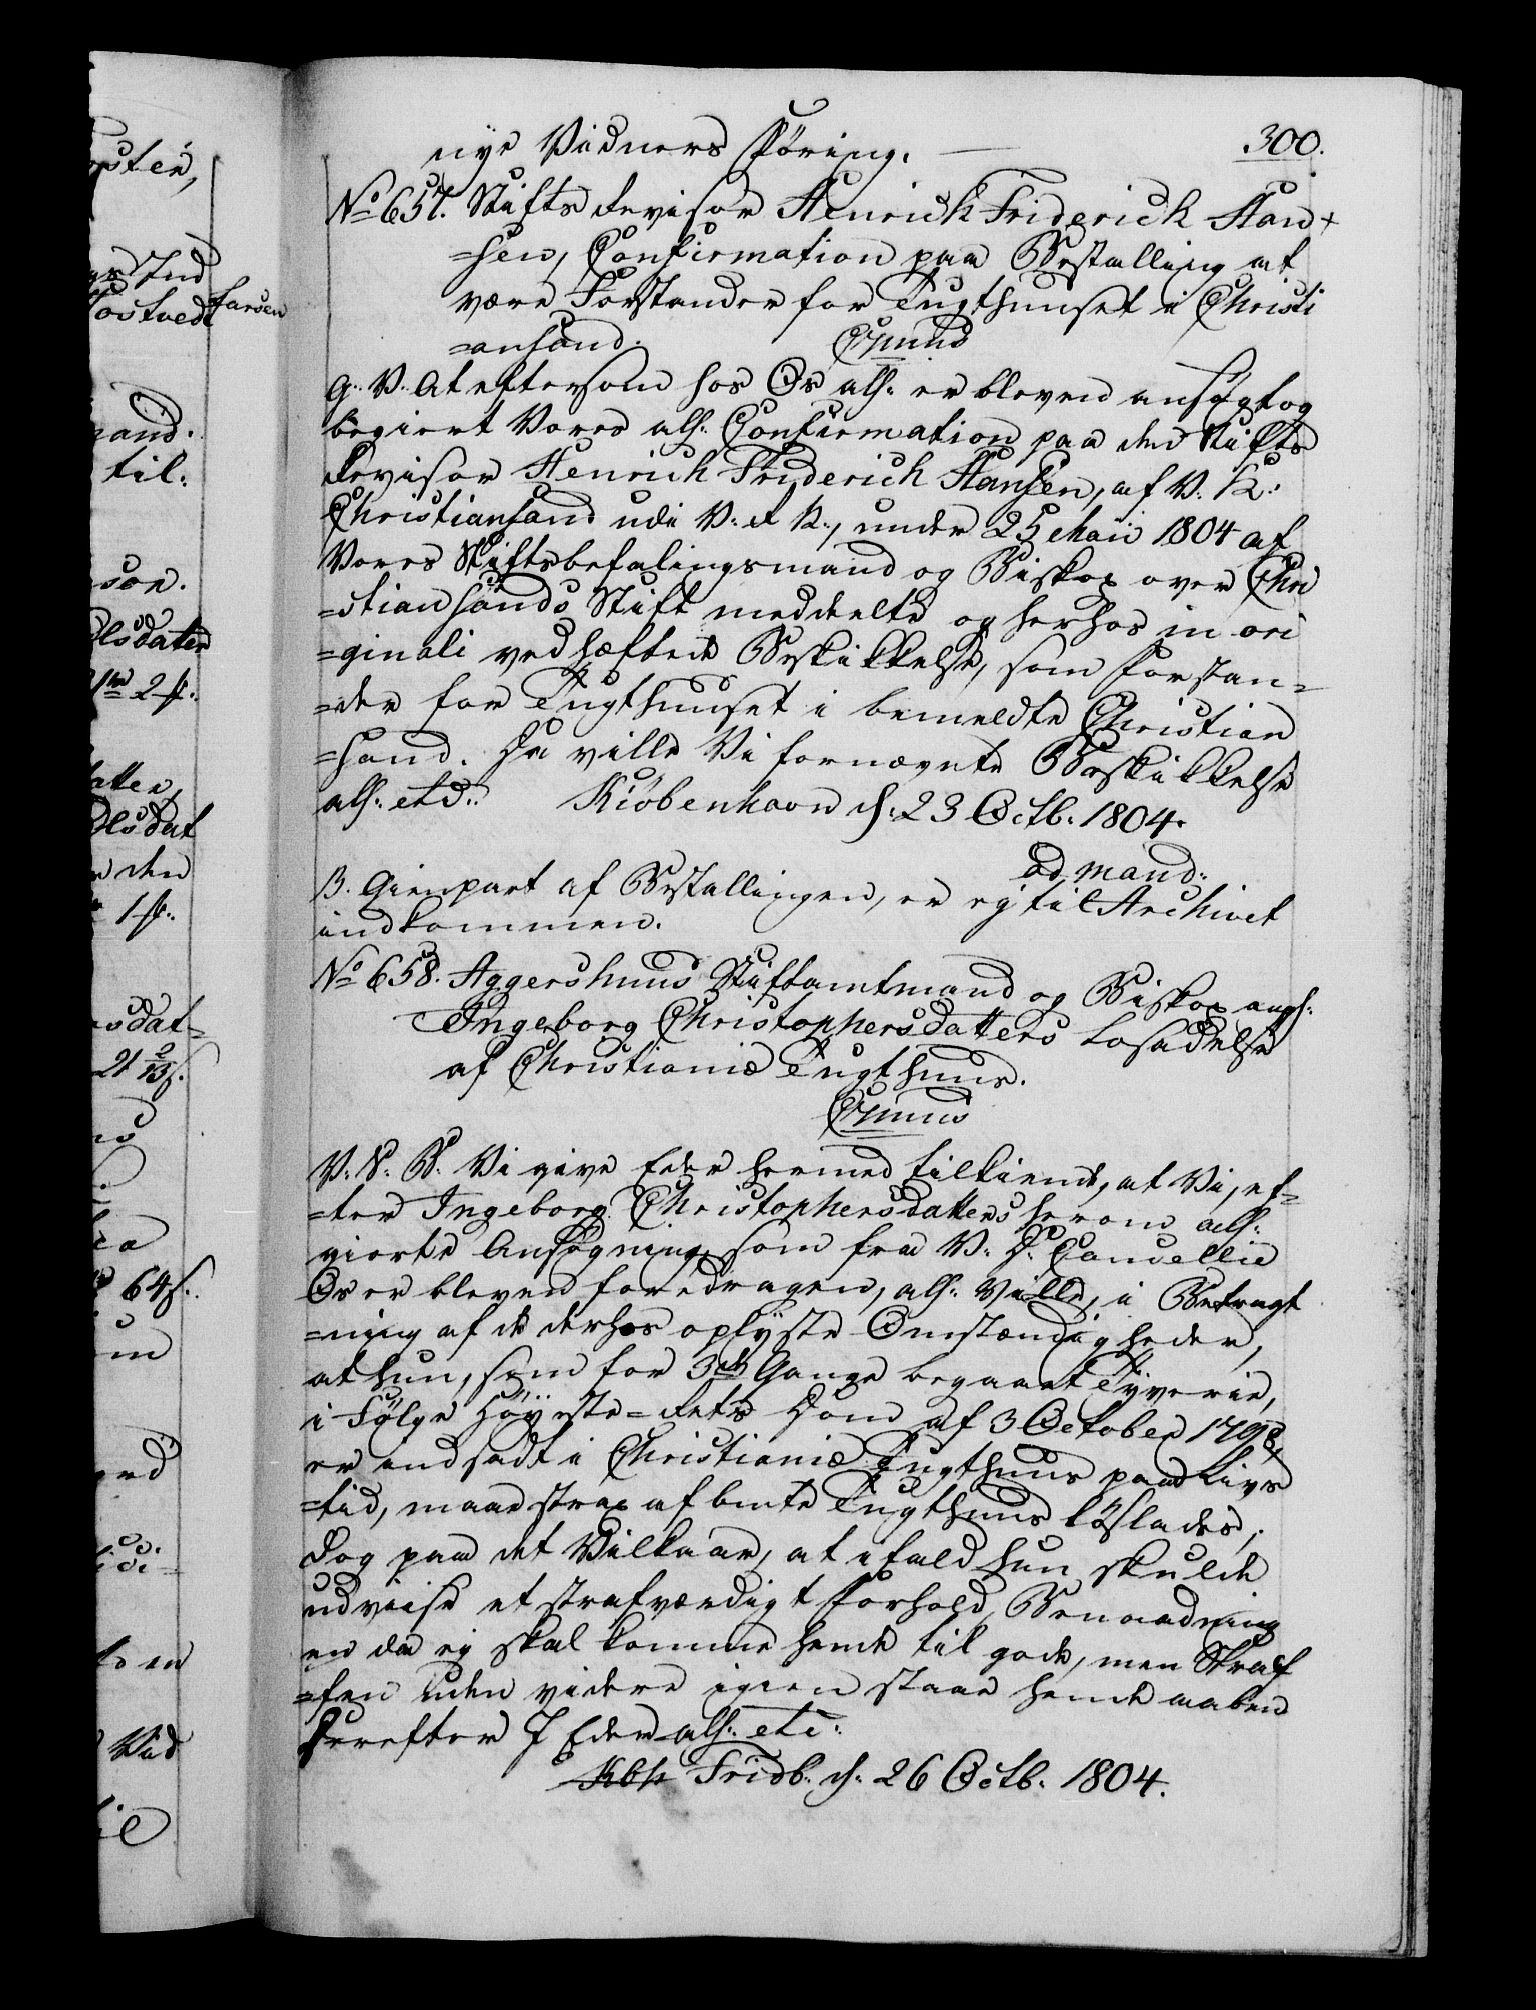 nye Vidners Föring. 300.
No 657. Stifts Revisor Henrich Friderich Han+
=sen, Confirmation paa Bestalling at
være Forstander for Tugthuuset i Christi
=ansand.
G. V. At eftersom hos Os alh: er bleven ansøgt og
begiert Vores alh: Confirmation paa den Stifts
Revisor Henrich Friderich Hansen, af V. K:
Christiansand udi V: R N:, under 25 Maii 1804 af
Vores Stiftsbefalingsmand og Biskop over Chri
=stiansands Stift meddeelte og herhos in ori
=ginali vedhæftede Beskikkelse, som Forstan=
=der for Tugthuuset i bemeldte Christian
=sand. Da ville Vi fornævnte Beskikkelse
alh: etc:. Kiøbenhavn d: 23 Octb: 1804.
ad mand:
B. Gienpart af Bestallingen, er ej til Archivet
indkommen.
No 658. Aggershuus Stiftamtmand og Biskop angl:
Ingeborg Christophersdatters Losladelse
af Christianiæ Tugthuus.
V. S. B. Vi give Eder hermed tilkiende, at Vi, ef=
=ter Ingeborg Christophersdatters herom alh:
giorte Ansøgning, som fra V. D. Cancellie
Os er bleven foredragen, alh: Ville, i Betragt
=ning af de derhos oplyste Omstændigheder,
at hun, som for 3de Gange begaaet Tyverie,
i Følge Høyeste=Rets Dom af 3 October 1798
er indsadt i Christianiæ Tugthuus paa Livs
=tid, maae strax af bmte Tugthuus løslades;
dog paa det Vilkaar, at ifald hun skulde
udviise et strafværdigt Forhold, Benaadning
en da ej skal komme hende til gode, men Straf
=fen uden videre igien staae hende aaben
Herefter I Eder alh: etc:
Kbh Fridb: d: 26 Octb: 1804.